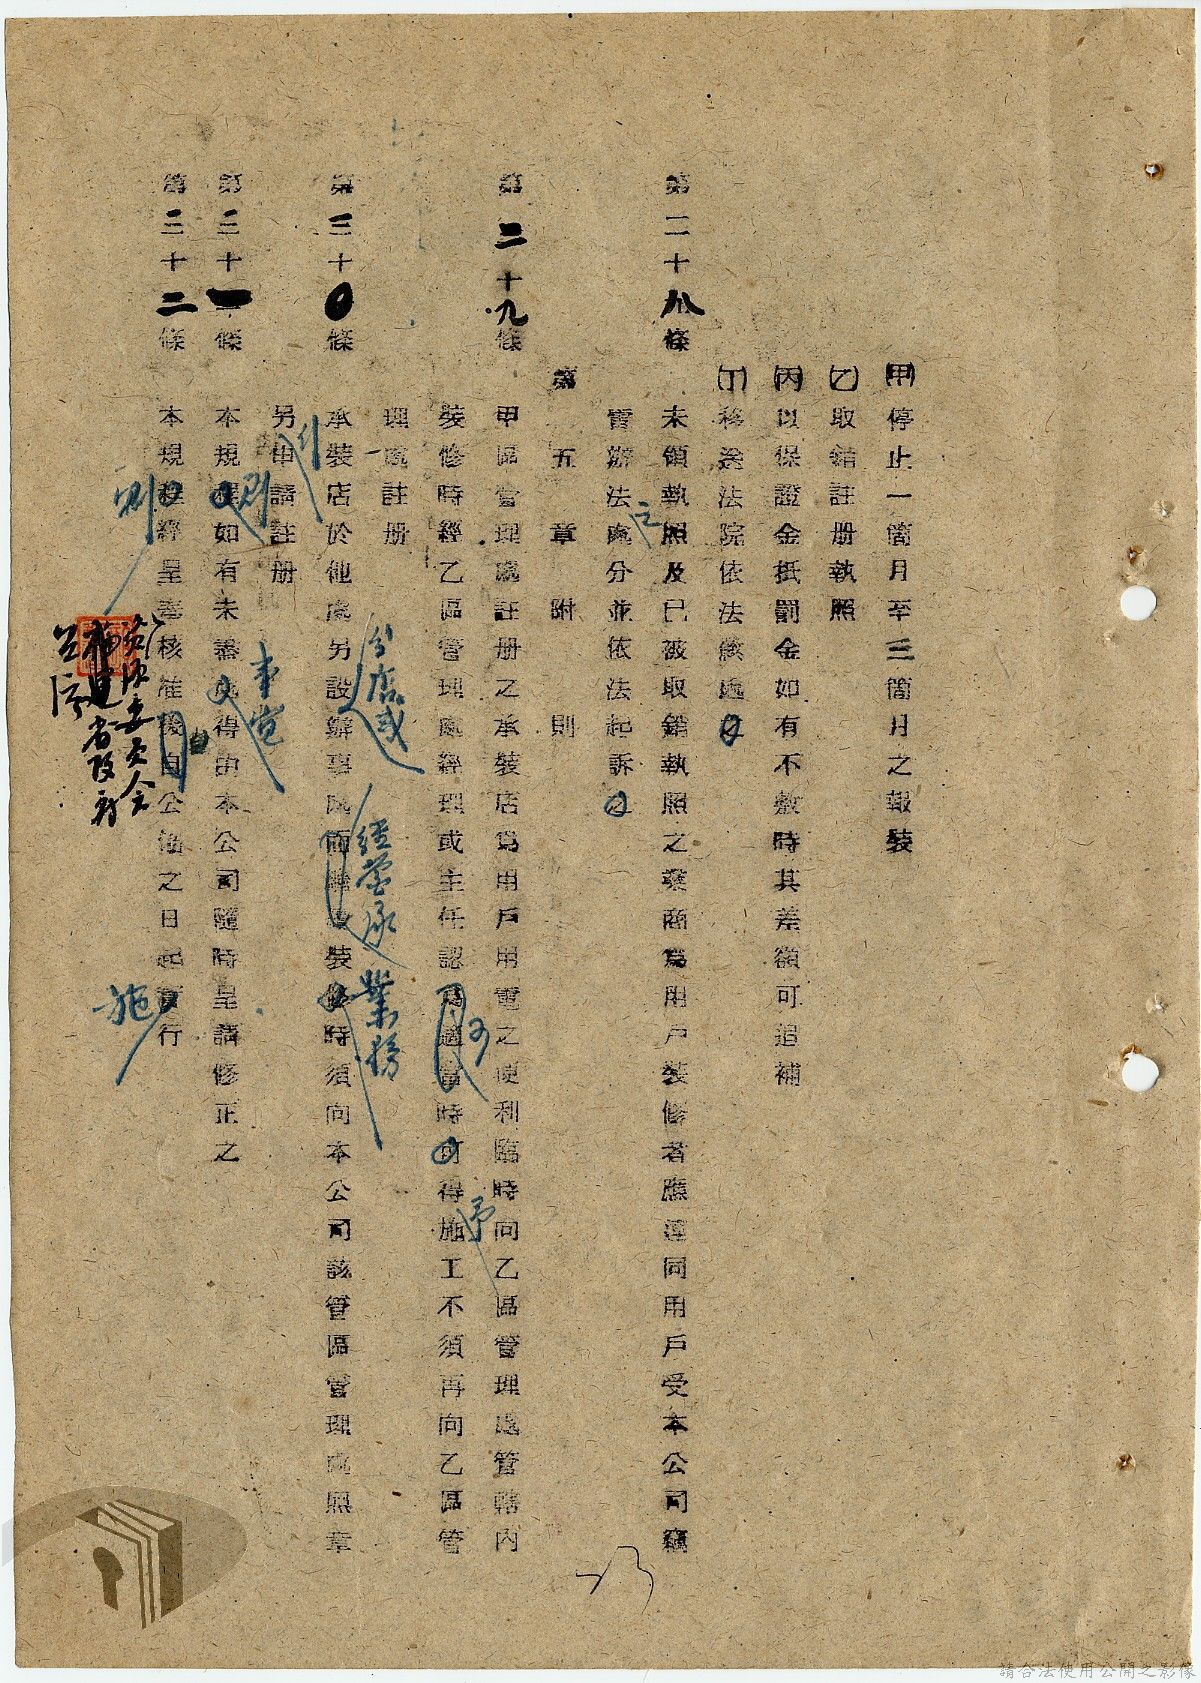 (甲)停止一箇月至三箇月之報裝
(乙)取銷註册執照
(丙)以保證金抵罰金如有不敷時其差額可追補
(丁)移送法院依法懲處之
第二十八條 未領執照及已被取銷執照之業商爲用戶裝修者應連同用戶受本公司竊
電辦法處分並依法起訴之
第五章 附則
第二十九條 甲區管理處註册之承裝店爲用戶用電之便利臨時向乙區管理處管轄內
裝修時經乙區管理處經理或主任認爲適當時可得施工不須再向乙區管
理處註册
第三十0條 承裝店於他處另設辦事處而 裝 時須向本公司該管區管理處照章
分店或
經營承 業務
另申請註册
第三十一條 本規程如有未盡 得由本公司隨時呈請修正之
則
事宜
第三十二條 本規程經呈 核准後自公佈之日起實行
則
施
資源委員會
福建省政府
公佈
23
請合法使用公開之影像